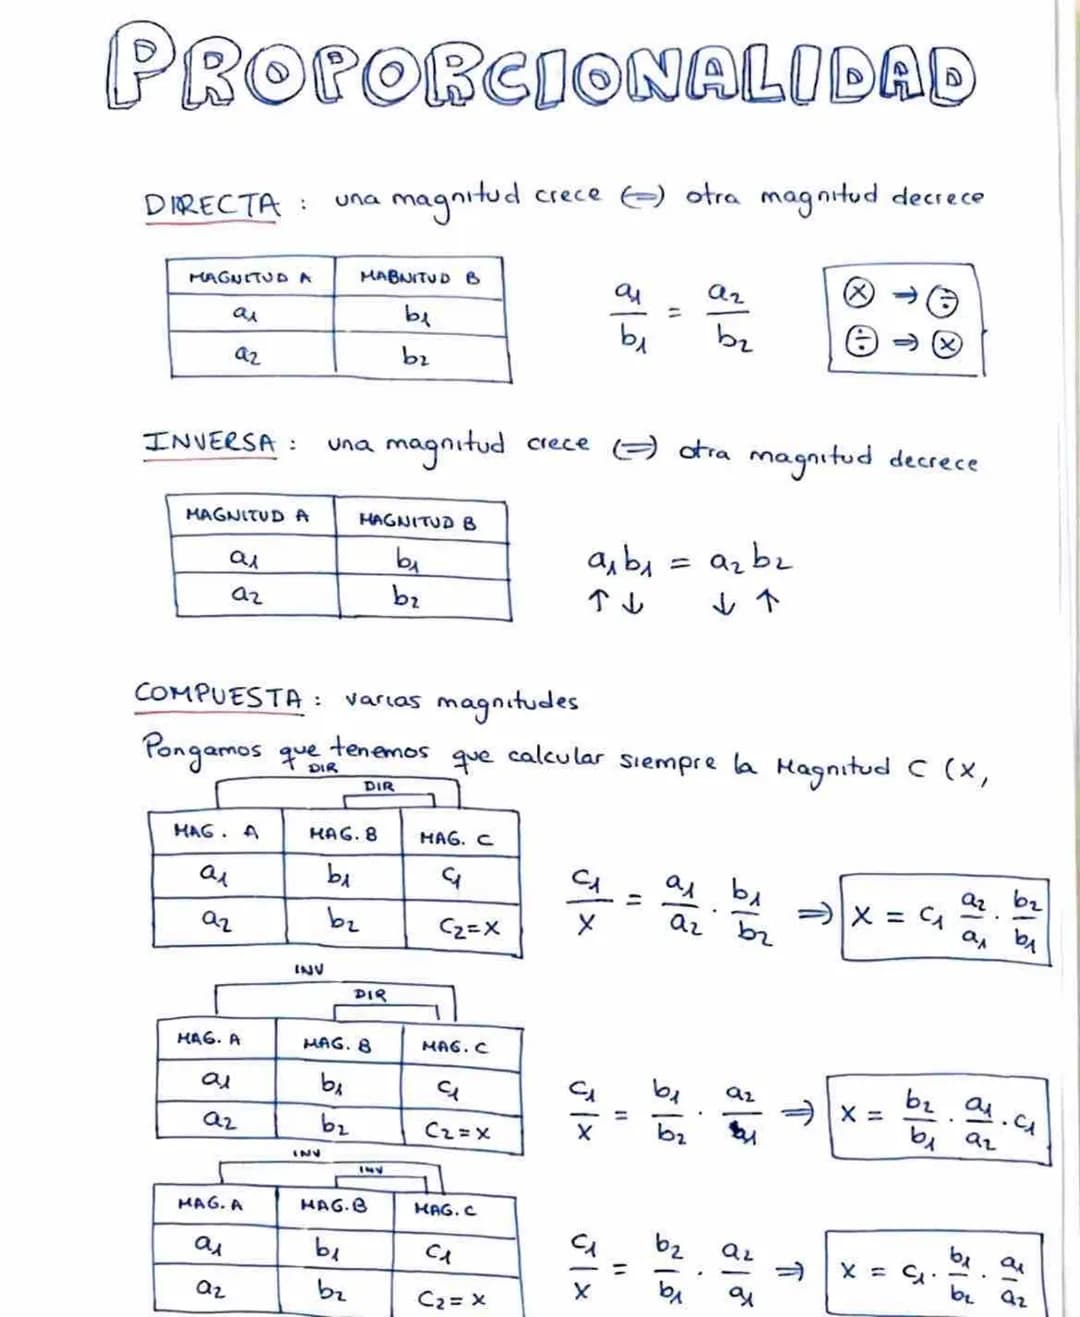 PROPORCIONALIDAD
DIRECTA : una magnitud crece (=) otra magnitud decrece
MAGNITUD A MABNITUD B
a1 b1
a2 b2
a1/b1 = a2/b2
ⓧ ⇒ ÷
÷ ⇒ ⓧ
INVERSA : una magnitud crece (=) otra magnitud decrece
MAGNITUD A MAGNITUD B
a1 b1
a2 b2
a1b1 = a2b2
↑↓ ↓↑
COMPUESTA : varias magnitudes
Pongamos que tenemos que calcular siempre la Magnitud C (x,
DIR
DIR
MAG. A MAG. B MAG. C
a1 b1 c1
a2 b2 C2=X
c1/x = a1/a2 · b1/b2 ⇒ x = c1 a2/a1 · b2/b1
INV
DIR
MAG. A MAG. B MAG. C
a1 b1 c1
a2 b2 C2=X
c1/x = b1/b2 · a2/a1 ⇒ x = b2/b1 · a1/a2 · c1
INV
INV
MAG. A MAG. B MAG. C
a1 b1 c1
a2 b2 C2=X
c1/x = b2/b1 · a2/a1 ⇒ x = c1 · b1/b2 · a1/a2